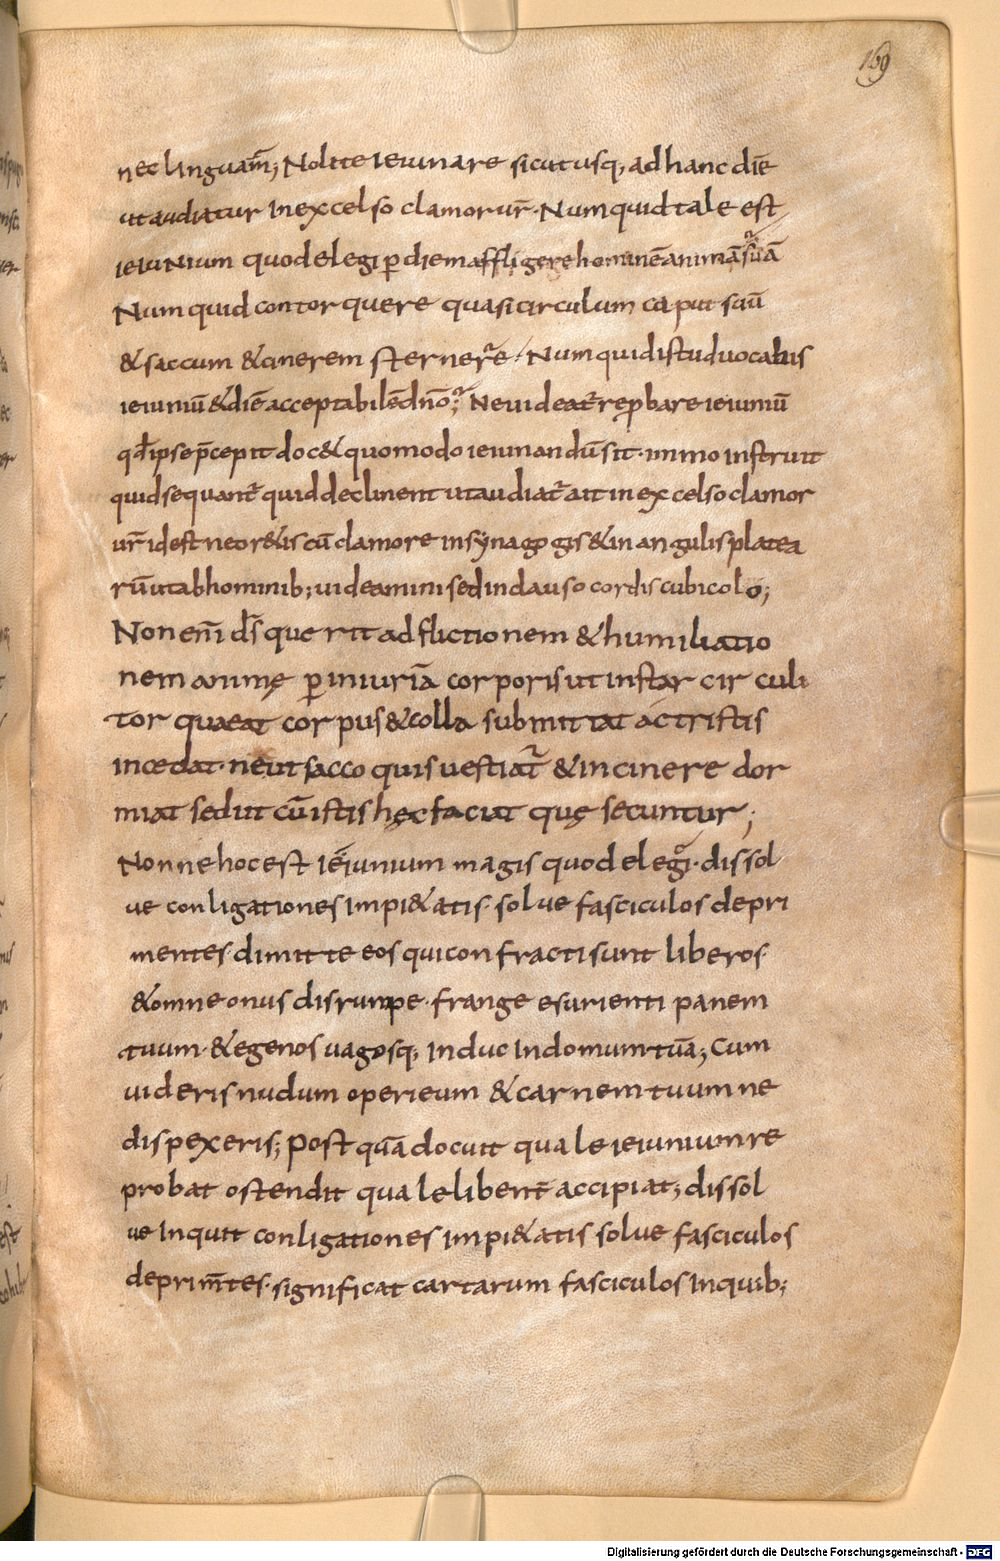 169
nec linguam̄; Nolite Ieiunare sicut usq; ad hanc diē
ut audiatur In excelso clamor ur̄. Numquid tale est
ieiuNium quod elegi ꝑ diem affligere hominē animā suā
Numquid contorquere quasi circulum caput suū
& saccum & cinerem sternere. Numquid istud uocabis
ieiuniū & diē acceptabilē dn̄o; Ne uideat᷑ rep̱bare ieiuniū
qđ ipse p̄cepit doc& quomodo ieiunandū sit. immo instruit
quid sequant᷑ quid declinent ut audiat᷑ ait in excelso clamor
ur̄ id est ne or&is cū clamore in synagogis & in angulis platea
rū ut ab hominib; uideamini sed in clauso cordis cubicolo;
Non eni̅ ds̄ querit adflictionem & humiliatio
nem animę ꝑ iniuriā corporis ut instar circuli
torqueat corpus & colla submittat ac tristis
incedat. ne ut sacco quis uestiat᷑ & in cinere dor
miat sed ut cū istis hęc faciat quę secuntur;
Nonne hoc est Ieiunium magis quod elegi. dissol
ue conligationes impi&atis. solue fasciculos depri
mentes. dimitte eos qui confracti sunt liberos.
& omne onus disrumpe. frange esurienti panem
tuum. & egenos uagosq; Induc In domum tuā; Cum
uideris nudum operi eum & carnem tuum ne
dispexeris; Post quā docuit quale ieiunium re
probat ostendit quale libent̄ accipiat; dissol
ue Inquit conligationes impi&atis solue fasciculos
deprim̄tes. significat cartarum fasciculos In quib;
Digitalisierung gefördert durch die Deutsche Forschungsgemeinschaft - DFG